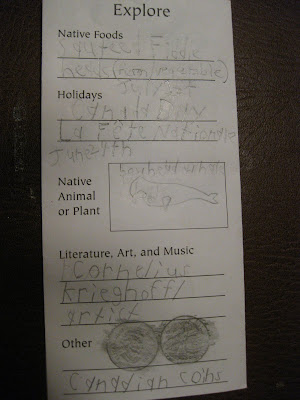 Explore
Native Foods
Sauteed Fiddle
heads (fern/vegetable)
July 1st
Holidays
Canada Day
La Fête Nationale
June 24th
Native
Animal
or Plant
bowhead whale
Literature, Art, and Music
Cornelius
Krieghoff/
artist
Other
Canadian coins